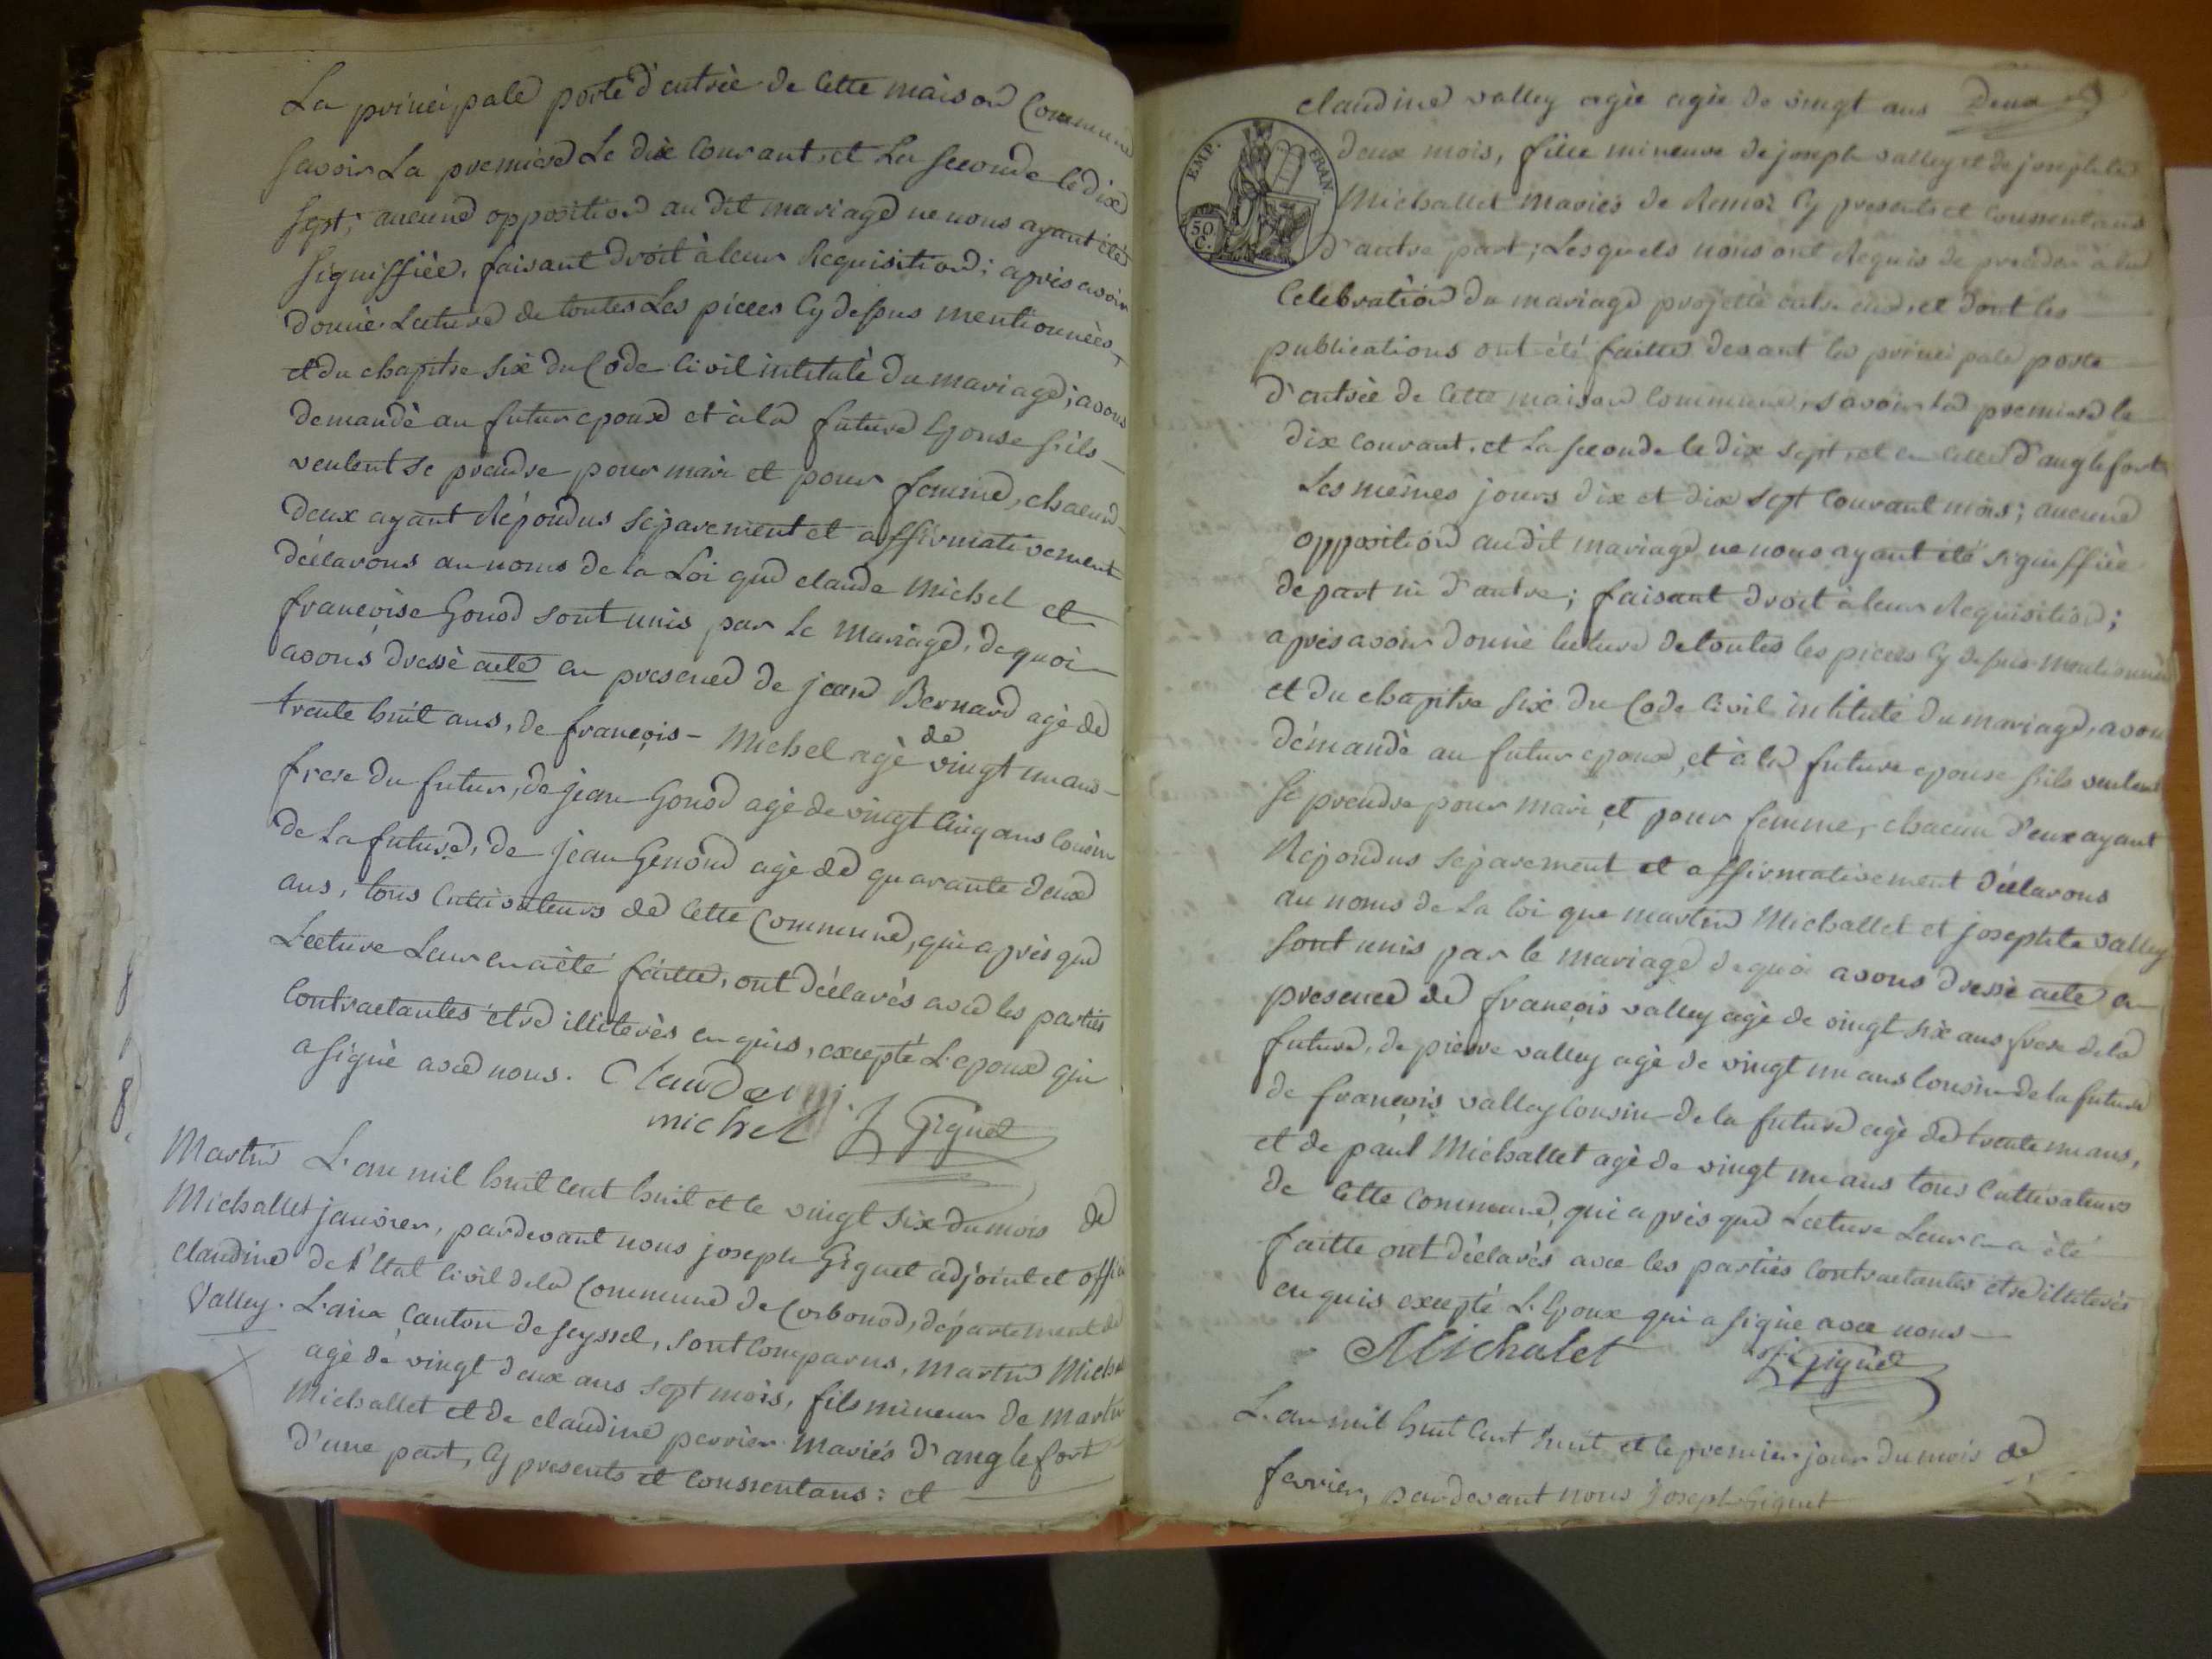 La principale porte d'entrée de cette maison Commune
savoir La premiere Le dix Courant, et La seconde le dix
sept; aucune opposition au dit mariage ne nous ayant été
signiffiée, faisant droit à leur Requisition; après avoir
donné Lecture de toutes Les pieces Cy dessus mentionnées,
et du chapitre six du Code Civil intitulé du mariage; avons
demandé au futur epoux et à la future Epouse s'ils
veulent se prendre pour mari et pour femme, chacun
deux ayant Répondus séparement et affirmativement
déclarons au noms de la Loi que claude Michel et
françoise Gonod sont unis par le mariage, de quoi
avons dressé acte en presence de jean Bernard agé de
trente huit ans, de françois - Michel agé de vingt un ans
frere du futur, de jean Gonod agé de vingt Cinq ans Cousin
de La future, de jean Genoud agé de quarante deux
ans, tous Cultivateurs de Cette Commune, qui après que
Lecture Leur en a été faitte, ont déclarés avec les parties
Contractantes être illiterés enquis, excepté L'epoux qui
a signé avec nous. Claude
michel J Giguet
Martin
Michallet
claudine
Valley.
L'an mil huit Cent huit et le vingt six du mois de
janvier, pardevant nous joseph Giguet adjoint et offi
de l'Etat Civil de la Commune de Corbonod, département de
L'ain Canton de seyssel, sont Comparus, Martin Mich
agé de vingt deux ans sept mois, fils mineur de Martin
Michallet et de claudine perrier mariés d'anglefort
d'une part, Cy presents et Conssentans: et
claudine valley agée agée de vingt ans Deux
EMP. FRAN.
50 C.
deux mois, fille mineure de joseph valley et de josephte
Michallet mariés de Remoz Cy presents et Conssentans
d'autre part; Lesquels nous ont Requis de proceder à la
Celebration du mariage projetté entre eux, et dont les
publications ont été faittes devant la principale porte
d'entrée de Cette maison Commune, savoir La premiere le
dix Courant, et La seconde le dix sept, et en Celle d'anglefort
Les mêmes jours dix et dix sept Courant mois; aucune
opposition audit mariage ne nous ayant été signiffiée
de part ni d'autre; faisant droit à leur Requisition;
après avoir donné lecture de toutes les pieces Cy dessus mentionnées
et du chapitre six du Code Civil intitulé du mariage, avons
démandé au futur epoux, et à la future epouse s'ils veulent
se prendre pour mari et pour femme, chacun d'eux ayant
Répondus séparement et affirmativement déclarons
au noms de La loi que martin Michallet et josephte valley
sont unis par le mariage de quoi avons dressé acte en
presence de françois valley agé de vingt six ans frere de la
future, de pierre valley agé de vingt un ans Cousin de la future
de françois valley Cousin de la future agé de trente un ans,
et de paul Michallet agé de vingt un ans tous Cultivateurs
de Cette Commune, qui après que Lecture Leur en a été
faitte ont déclarés avec les parties Contractantes etre illiterés
enquis excepté L'Epoux qui a signé avec nous
Michalet J Giguet
L'an mil huit Cent huit et le premier jour du mois de
fevrier, pardevant nous joseph Giguet